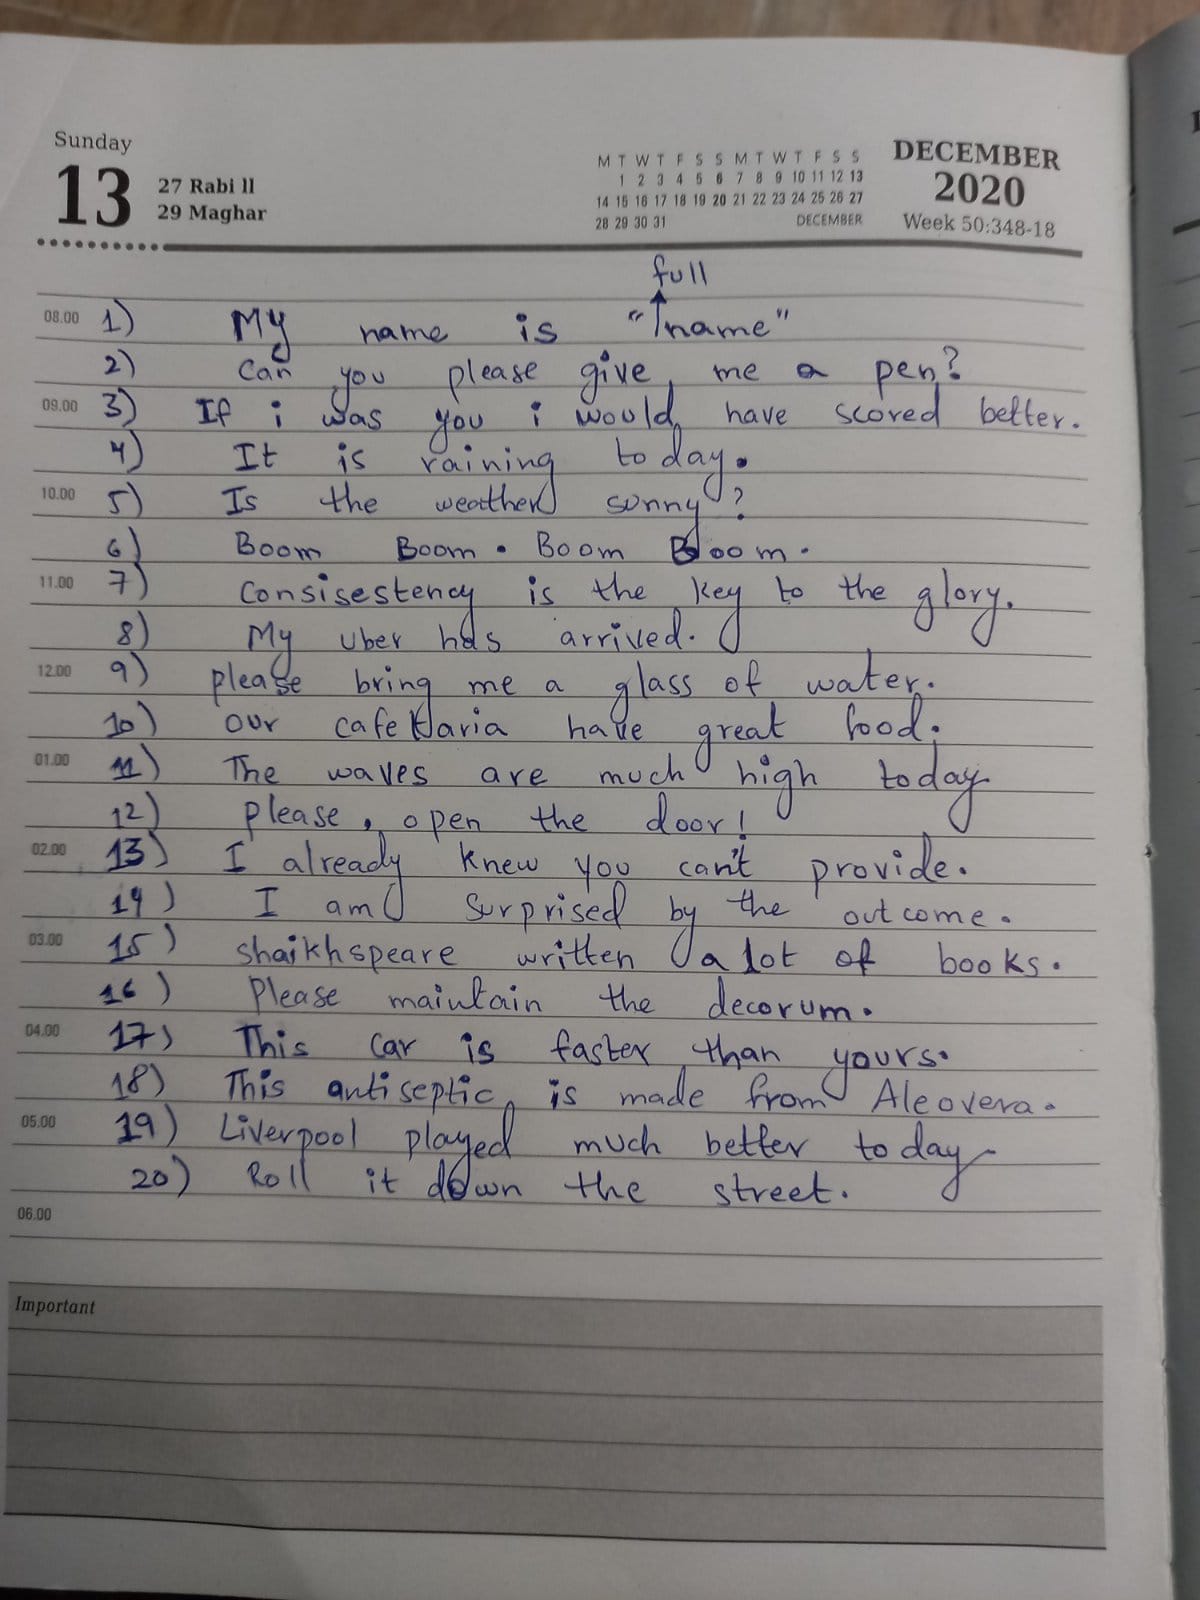 Sunday
13
27 Rabi ll
29 Maghar
M T W T F S S M T W T F S S
1 2 3 4 5 6 7 8 9 10 11 12 13
14 15 16 17 18 19 20 21 22 23 24 25 26 27
28 29 30 31
DECEMBER
DECEMBER
2020
Week 50:348-18
full
08.00 1) My name is "name"
2) Can you please give me a pen?
09.00 3) If i was you i would have scored better.
4) It is raining today.
10.00 5) Is the weather sunny?
6) Boom Boom. Boom Boom.
11.00 7) Consisestency is the key to the glory.
8) My uber has arrived.
12.00 9) please bring me a glass of water.
10) our cafetaria have great food.
01.00 11) The waves are much high today
12) please, open the door!
02.00 13) I already knew you can't provide.
14) I am surprised by the outcome.
03.00 15) shaikhspeare written a lot of books.
16) Please maintain the decorum.
04.00 17) This car is faster than yours.
18) This antiseptic is made from Aleovera.
05.00 19) Liverpool played much better today
20) Roll it down the street.
06.00
Important